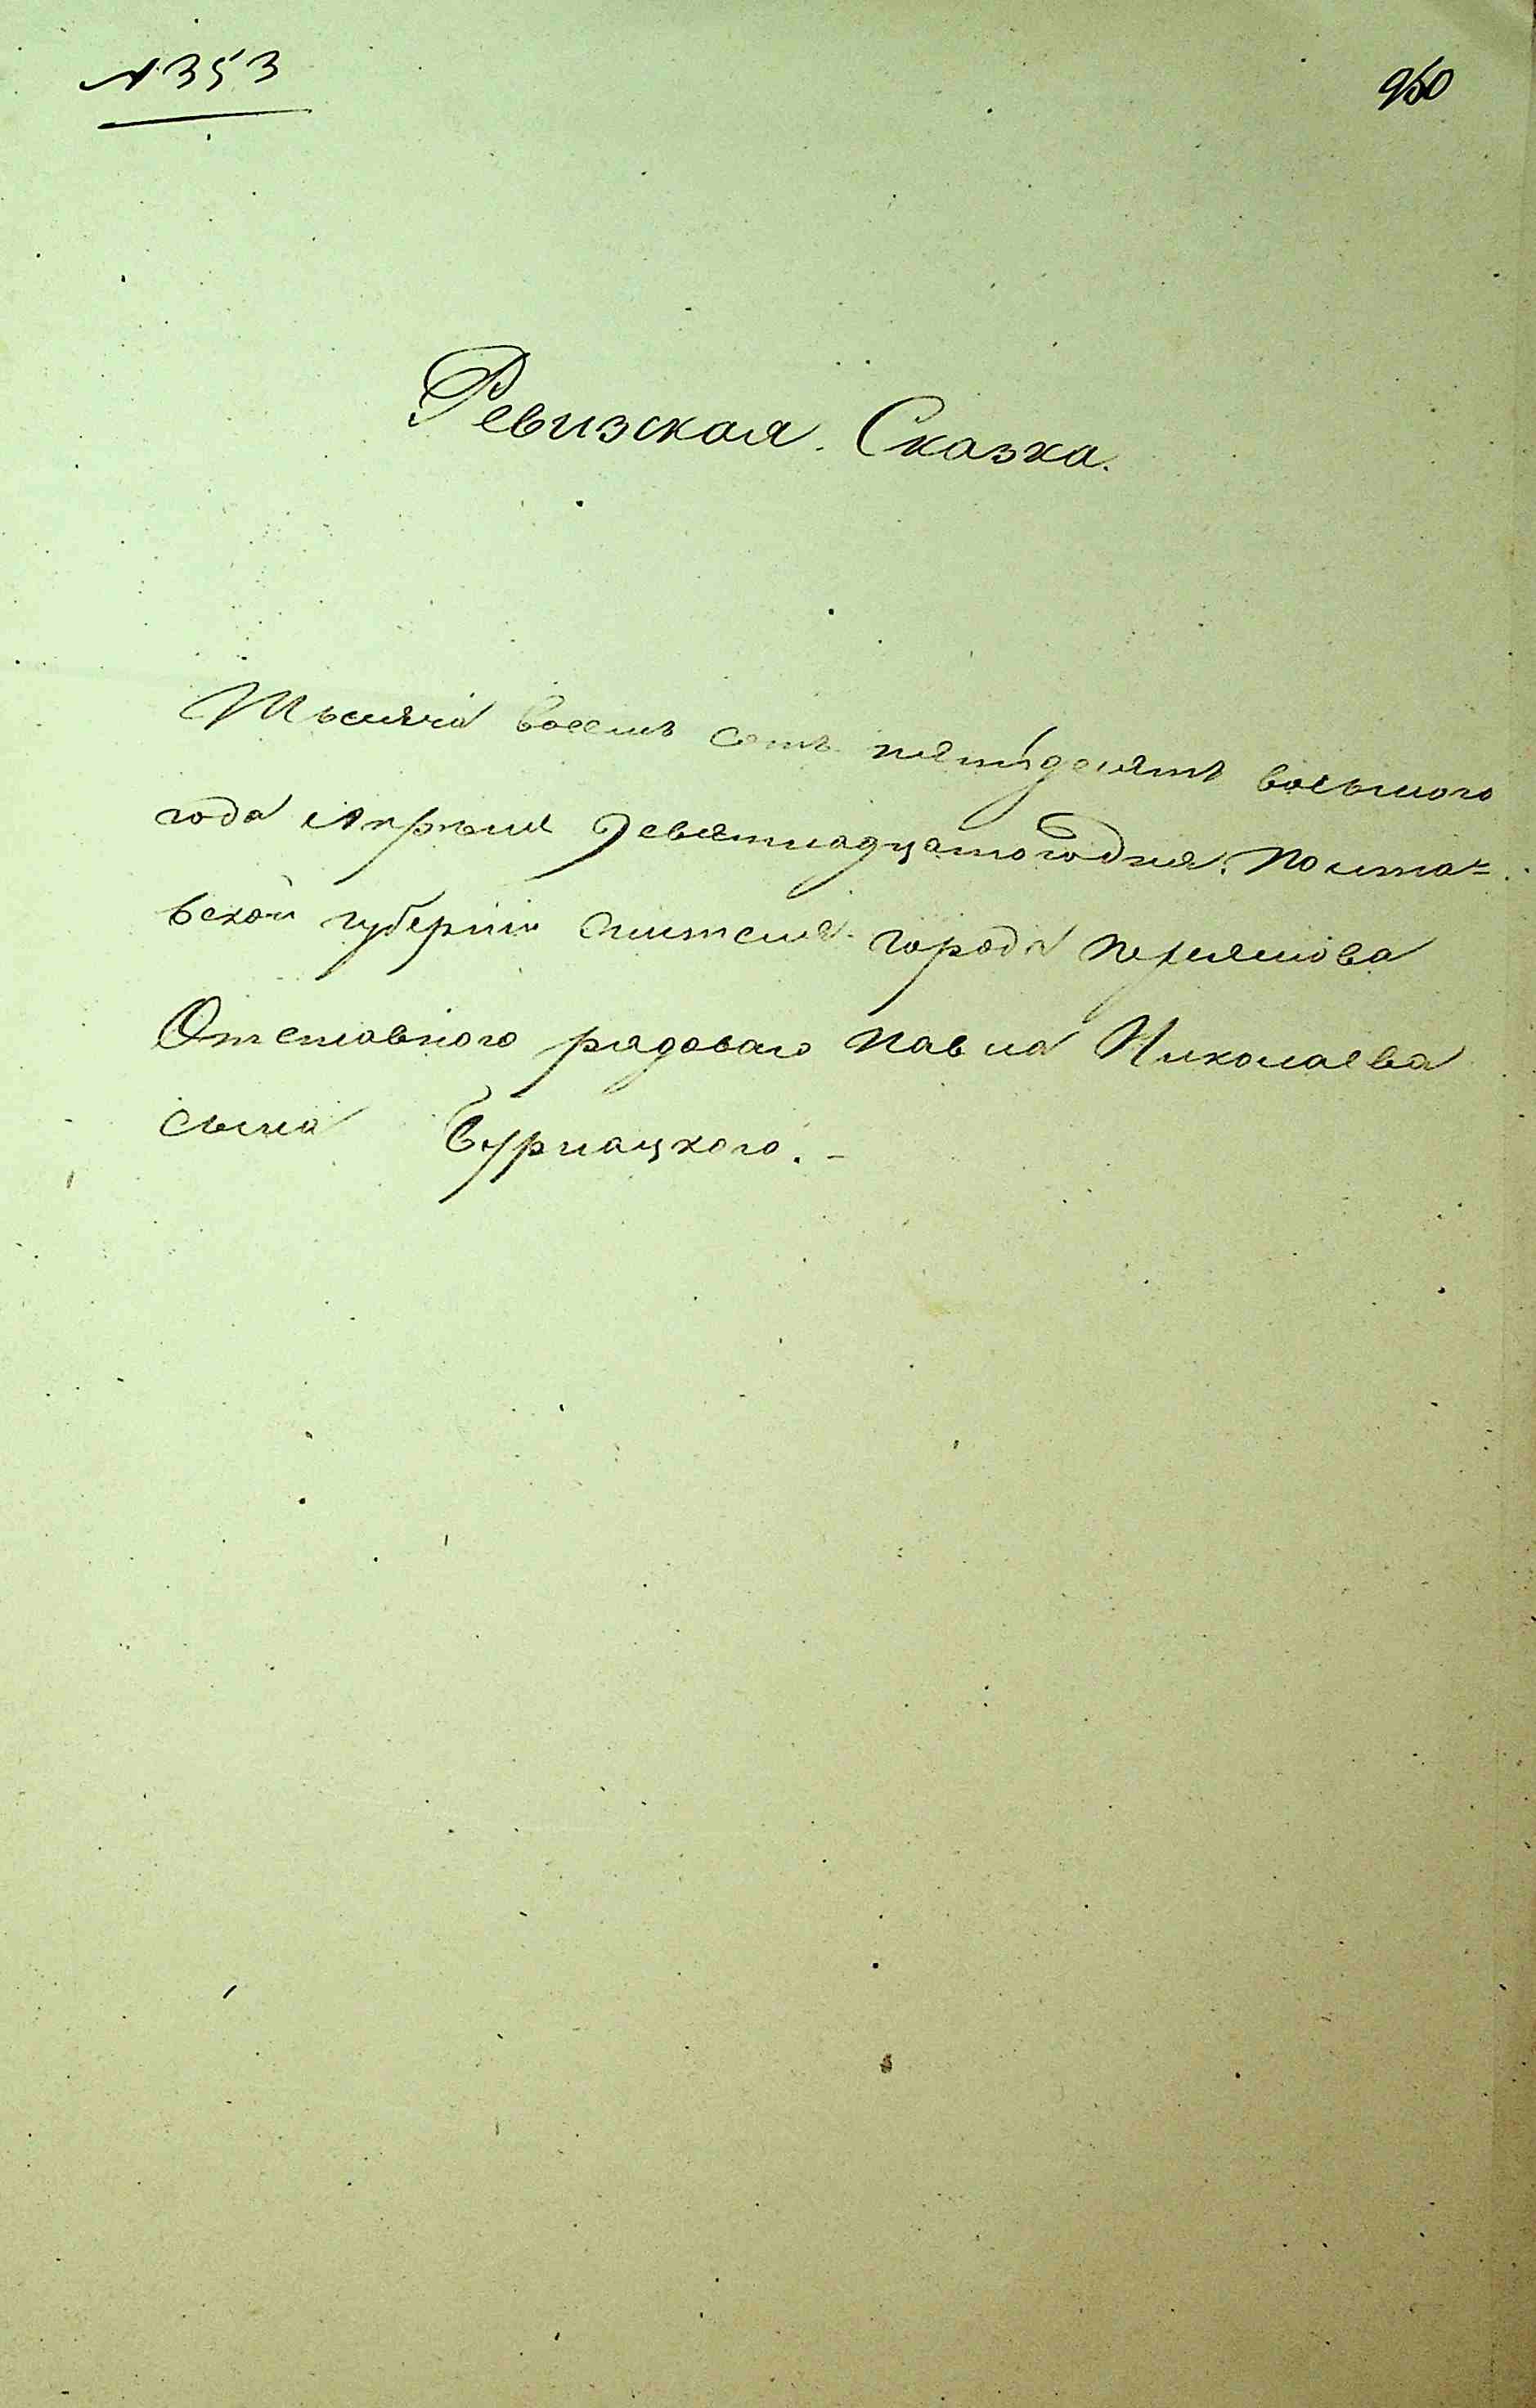 № 353
950
Ревизская Сказка.
Тысяча восемь сотъ пятьдесятъ восьмого
года Апрѣля Девятнадцатого дня. Полта=
вской губерніи жителя города
Отставного рядоваго Павла Николаева
сына Бурнацкого. -